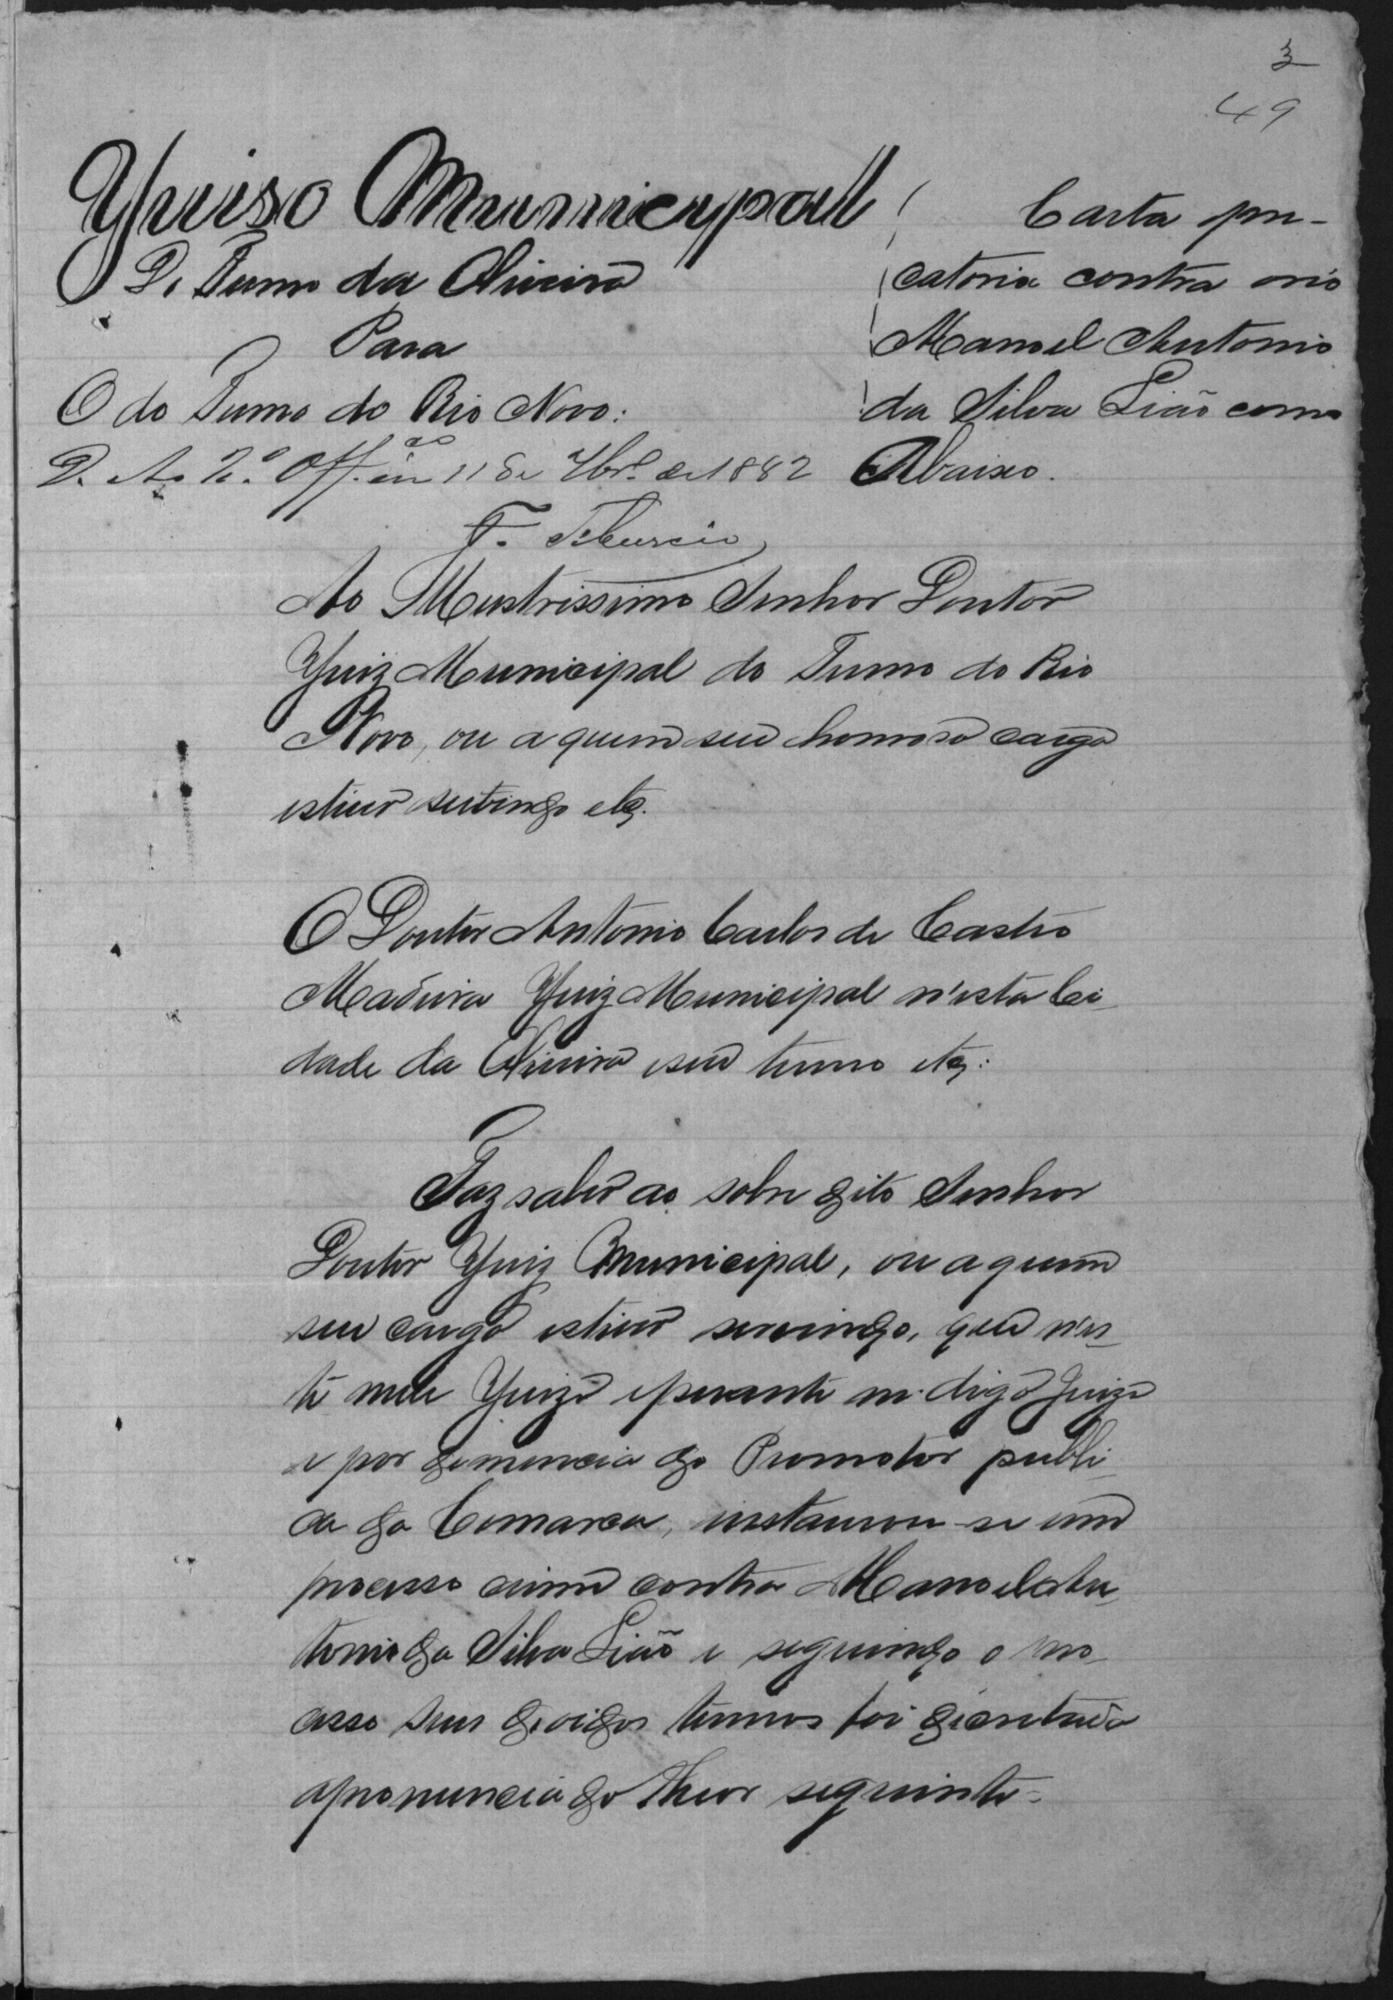 3
49
Juiso Municipal
Do Termo da Oliveira
Para
O do Termo do Rio Novo:
D. Ao 2º Off. em 11 de 7brº de 1882
F. Tiburcio
Carta pre-
catoria contra orio
Manoel Antonio
da Silva Lião como
Abaixo.
Ao Illustrissimo Senhor Doutor
Juiz Municipal do Termo do Rio
Novo, ou a quem seu honroso cargo
estiver servindo etc.
O Doutor Antonio Carlos de Castro
Madeira Juiz Municipal n'esta Ci-
dade da Oliveira eseu termo etc:
Faz saber ao sobre dito Senhor
Doutor Juiz Municipal, ou aquem
seu cargo estiver servindo, que n'es-
te meu Juizo eperante m. digo Juizo
e por denuncia do Promotor publi-
co da Comarca, instaurou-se um
processo crime contra Manoel An-
tonio da Silva Lião e seguindo o pro-
cesso seus devidos termos foi decretada
apronuncia do theor seguinte-